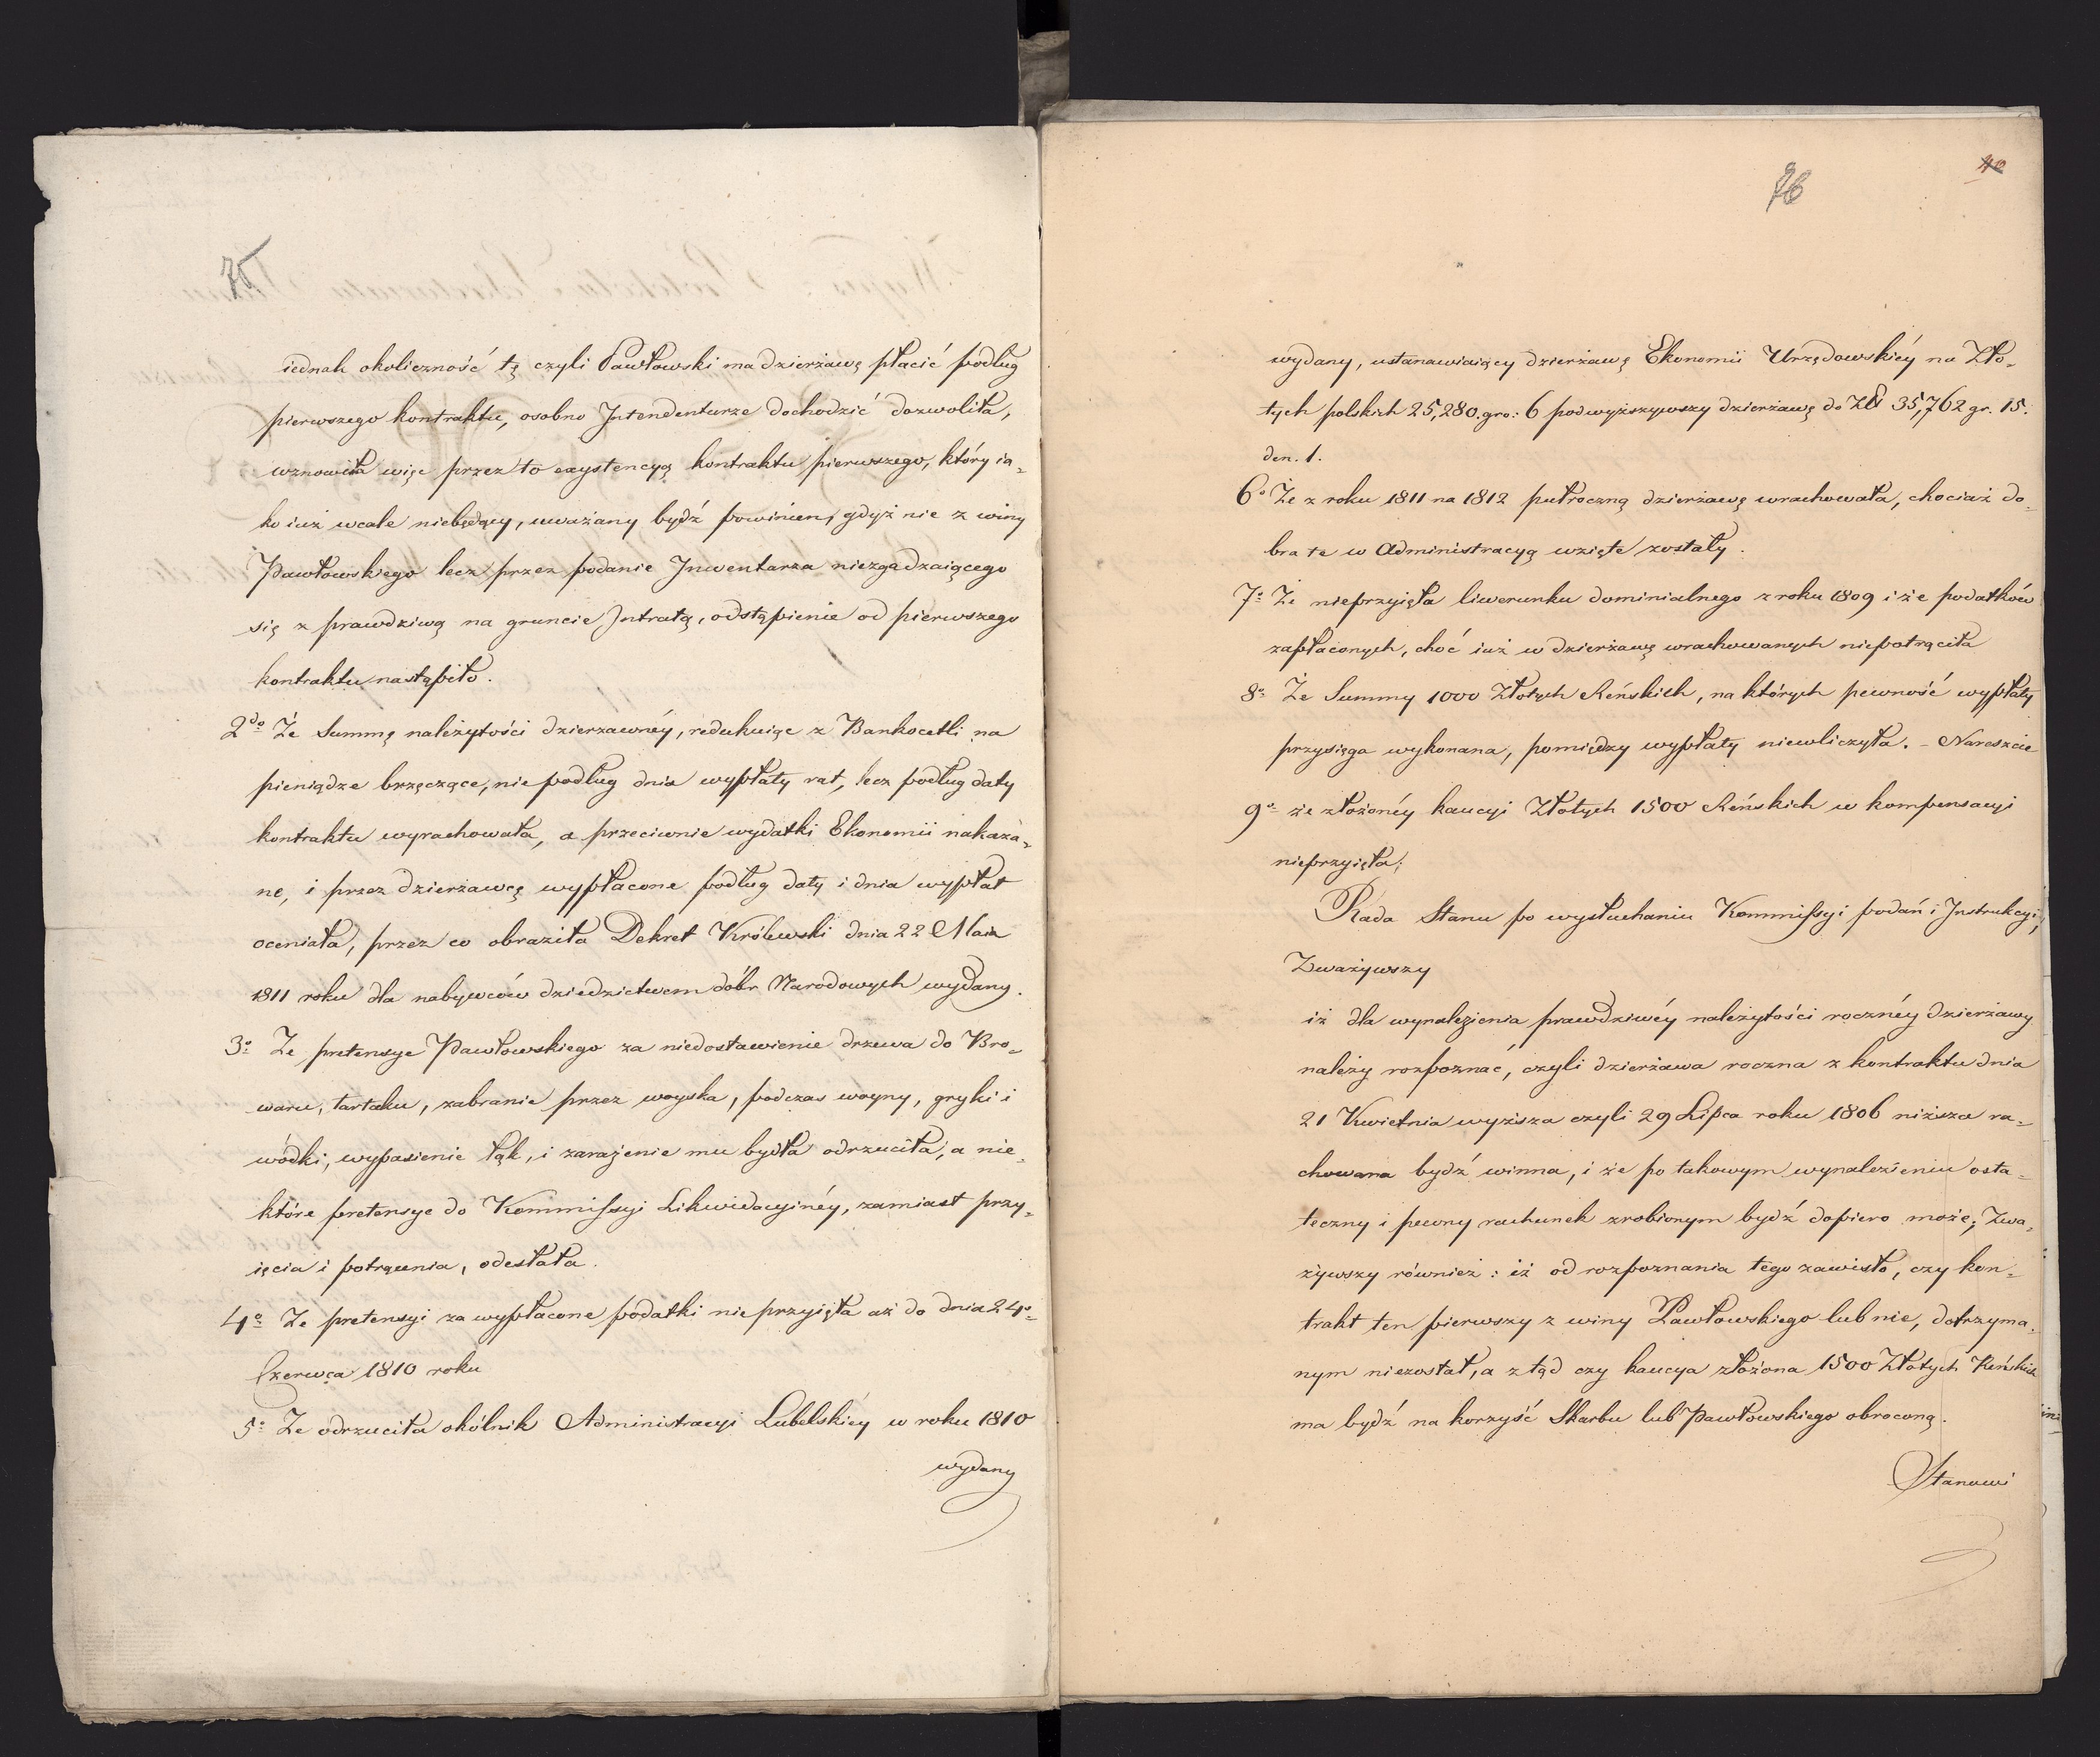 75
iednak okoliczność tę czyli Pawłowski ma dzierżawę płacić podług
pierwszego kontraktu, osobno Intendenturze dochodzić dozwoliła,
wznowiła więc przez to exystencyą kontraktu pierwszego, który ia„
ko iuż wcale niebędący, uważany bydź powinien, gdyż nie z winy
Pawłowskiego lecz przez podanie Inwentarza niezgadzaiącego
się z prawdziwą na gruncie Intratą, odstąpienie od pierwszego
kontraktu nastąpiło.
2do Że Summę należytości dzierzawnéy, redukuiąc z Bankocetli na
pieniądze brzęczące, nie podług dnia wypłaty rat, lecz podług daty
kontraktu wyrachowała, a przeciwnie wydatki Ekonomii nakaza„
ne, i przez dzierżawcę wypłacone podług daty i dnia wypłat
oceniała, przez co obraziła Dekret Królewski dnia 22 Maia
1811 roku dla nabywców dziedzictwem dóbr Narodowych wydany.
3o Ze pretensye Pawłowskiego za niedostawienie drzewa do Bro„
waru, tartaku, zabranie przez woyska, podczas woyny, gryki i
wódki, wypasienie łąk, i zarażenie mu bydła odrzuciła, a nie„
które pretensye do Kommissyi Likwidacyinéy, zamiast przy„
ięcia i potrącenia, odesłała.
4o Ze pretensyi za wypłacone podatki nie przyięła aż do dnia 24o
Czerwca 1810 roku
5o Ze odrzuciła okólnik Administracyi Lubelskiéy w roku 1810
wydany
40
76
wydany, ustanawiaiący dzierżawę Ekonomii Urzędowskiéy na Zło„
tych polskich 25,280. gro: 6 podwyższywszy dzierżawę do Zł 35,762 gr. 15.
den. 1.
6o Że z roku 1811 na 1812 pułroczną dzierżawę wrachowała, chociaż do„
bra te w Administracyą wzięte zostały.
7o Że nieprzyięła liwerunku dominialnego z roku 1809 i że podatków
zapłaconych, choć iuż w dzierżawę wrachowanych niepotrąciła
8o Że Summy 1000 Złotych Reńskich, na których pewność wypłaty
przysięga wykonana, pomiędzy wypłaty niewliczyła. – Nareszcie
9o że złożonéy kaucyi Złotych 1500 Reńskich w kompensacyi
nieprzyięła;
Rada Stanu po wysłuchaniu Kommissyi podań i Instrukcyi,
Zważywszy
iż dla wynalezienia prawdziwéy należytości rocznéy dzierżawy
należy rozpoznać, czyli dzierżawa roczna z kontraktu dnia
21 Kwietnia wyższa czyli 29 Lipca roku 1806 niższa ra„
chowana bydź winna, i że po takowym wynalezieniu osta„
teczny i pewny rachunek zrobionym bydź dopiero może; Zwa„
żywszy również: iż od rozpoznania tego zawisło, czy kon„
trakt ten pierwszy z winy Pawłowskiego lub nie, dotrzyma„
nym niezostał, a ztąd czy kaucya złożona 1500 Złotych Reńskich
ma bydź na korzyść Skarbu lub Pawłowskiego obroconą.
Stanowi